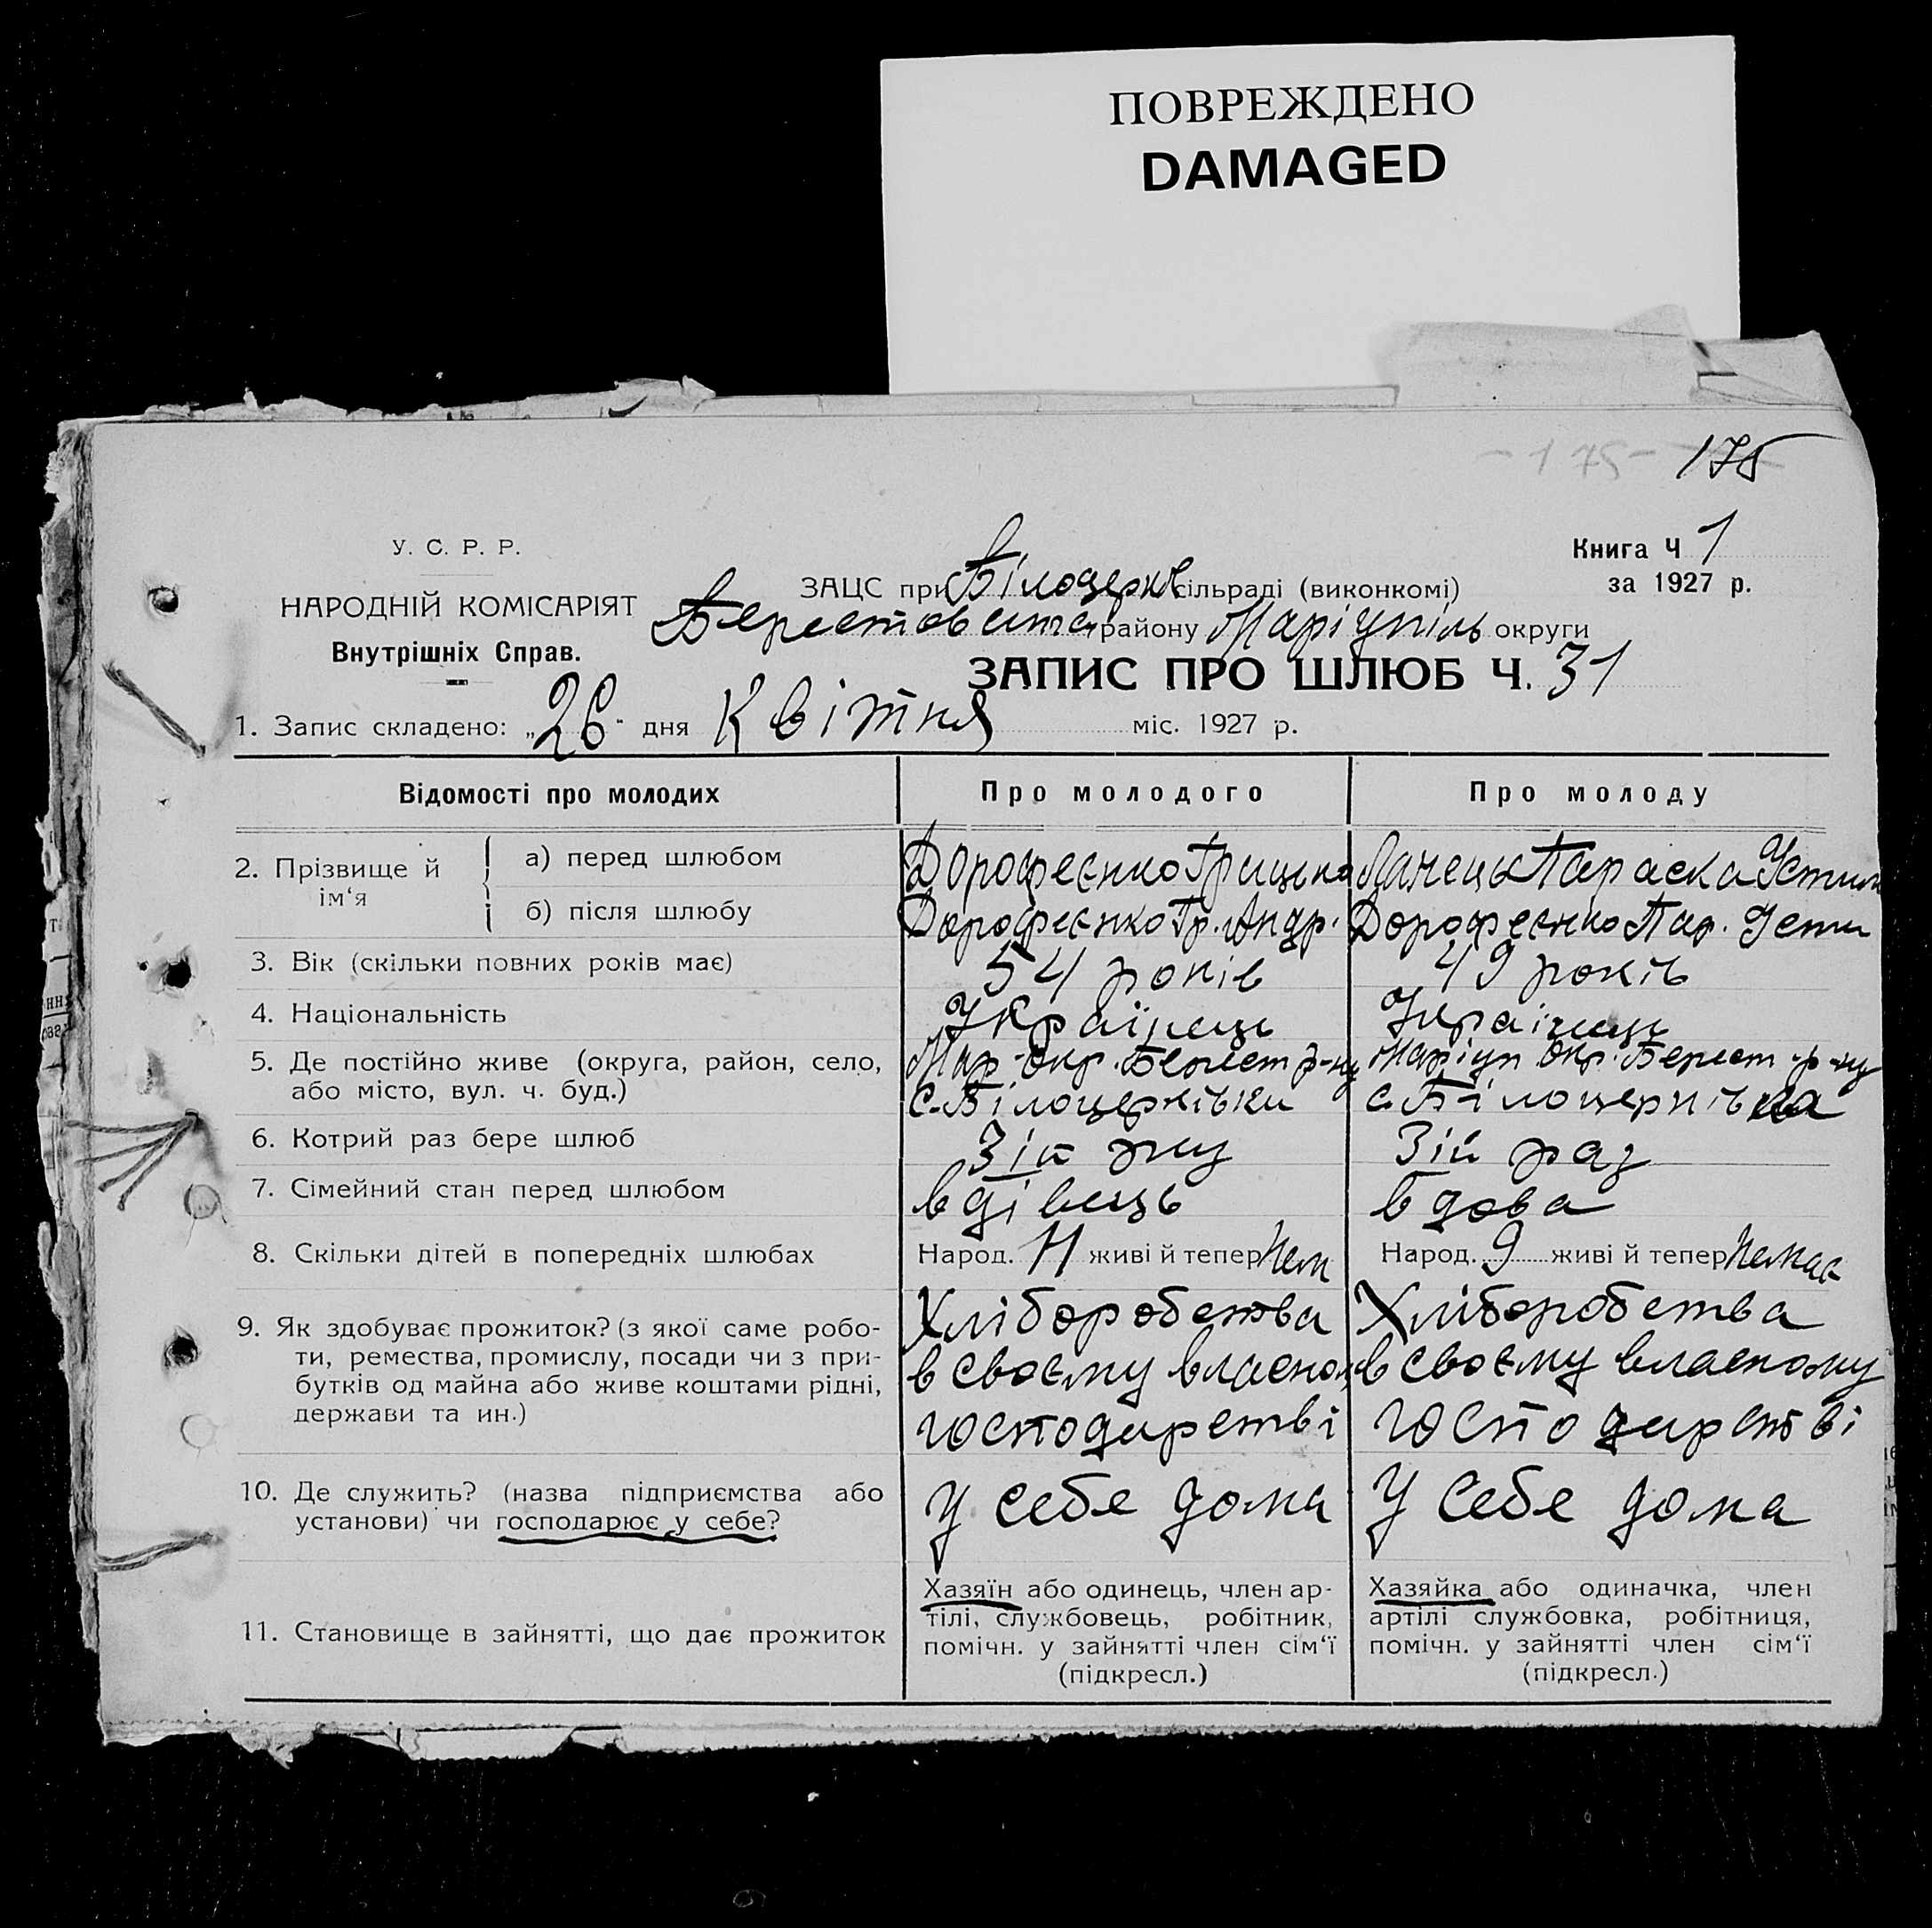 ПОВРЕЖДЕНО
DAMAGED
- 175 - 175
У. С. Р. Р.
НАРОДНІЙ КОМІСАРІЯТ
Внутрішніх Справ.
Книга Ч 1
за 1927 р.
ЗАЦС при Білоцерк сільраді (виконкомі)
району Маріупіль округи
ЗАПИС ПРО ШЛЮБ Ч. 31
1. Запис складено: „26" дня Квітня міс. 1927 р.
Відомості про молодих Про молодого Про молоду
2. Прізвище й ім‘я
а) перед шлюбом Дорофеєнко Грицько Параска Устин
б) після шлюбу Дорофеєнко Гр. Андр. Дорофеєнко Пар. Усти
3. Вік (скільки повних років має) 54 років 49 років
4. Національність Українець Українець
5. Де постійно живе (округа, район, село, Мар-окр. Берест р-ну Маріуп окр. Берест р-ну
або місто, вул. ч. буд.) с. Білоцерківки с. Білоцерківка
6. Котрий раз бере шлюб 3ій раз 3ій раз
7. Сімейний стан перед шлюбом вдівець вдова
8. Скільки дітей в попередніх шлюбах Народ. 11 живі й тепер Нем Народ. 9 живі й тепер Немає
9. Як здобуває прожиток? (з якої саме робо- Хліборобства Хліборобства
ти, ремества, промислу, посади чи з при- в своєму власном в своєму власному
бутків од майна або живе коштами рідні,
держави та ин.) господарстві господарстві
10. Де служить? (назва підприємства або У себе дома У себе дома
установи) чи господарює у себе?
11. Становище в зайнятті, що дає прожиток
Хазяїн або одинець, член ар-
тілі, службовець, робітник,
помічн. у зайнятті член сім‘ї
(підкресл.)
Хазяйка або одиначка, член
артілі службовка, робітниця,
помічн. у зайнятті член сім‘ї
(підкресл.)